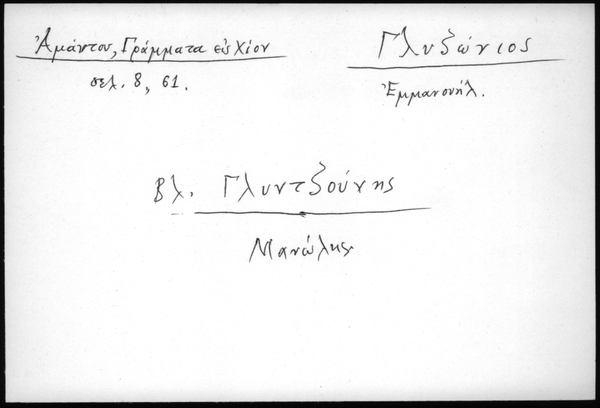 Ἀμάντου, Γράμματα εἰς Χίον
σελ. 8, 61.
Γλυζώνιος
Ἐμμανουήλ.
Βλ. Γλυντζούνης
Μανώλης